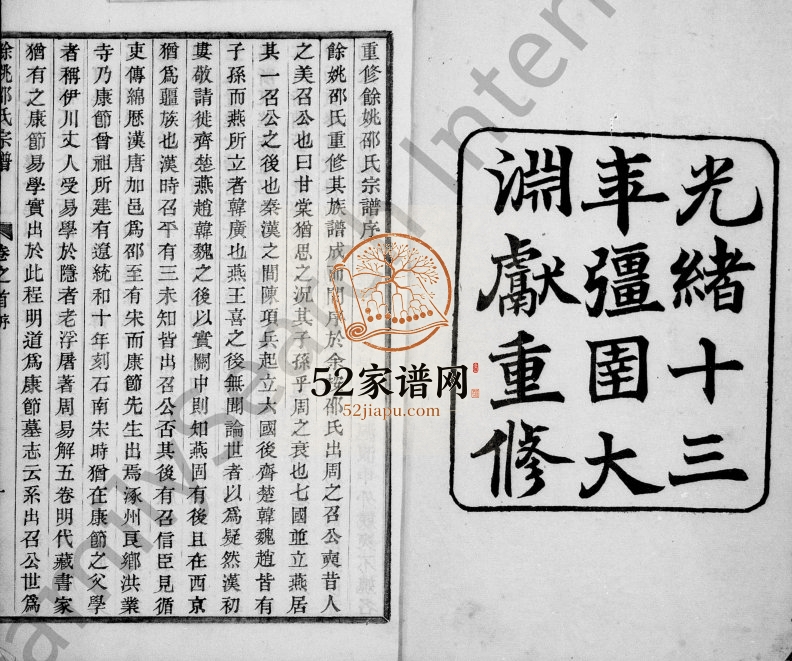 光緒十三
年彊圉大
淵獻重修
重修餘姚邵氏宗譜序
餘姚邵氏重修其族譜成而問序於余邵氏出周之召公奭昔人
之美召公也曰甘棠猶思之況其子孫乎周之衰也七國並立燕居
其一召公之後也秦漢之間陳項兵起立六國後齊楚韓魏趙皆有
子孫而燕所立者韓廣也燕王喜之後無聞論世者以爲疑然漢初
婁敬請徙齊楚燕趙韓魏之後以實關中則知燕固有後且在西京
猶爲彊族也漢時召平有三未知皆出召公否其後有召信臣見循
吏傳綿歷漢唐加邑爲邵至有宋而康節先生出焉涿州良鄉洪業
寺乃康節曾祖所建有遼統和十年刻石南宋時猶在康節之父學
者稱伊川丈人受易學於隱者老浮屠著周易解五卷明代藏書家
猶有之康節易學實出於此程明道爲康節墓志云系出召公世爲
餘姚邵氏宗譜 卷之首 序 一
52家谱网
52jiapu.com
FamilySearch Intern